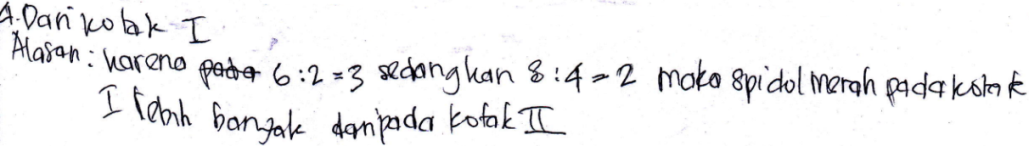 A. Dari kotak I
Alasan : karena pada 6 : 2 = 3 sedangkan 8 : 4 = 2 maka spidol merah pada kotak
I lebih banyak daripada kotak II